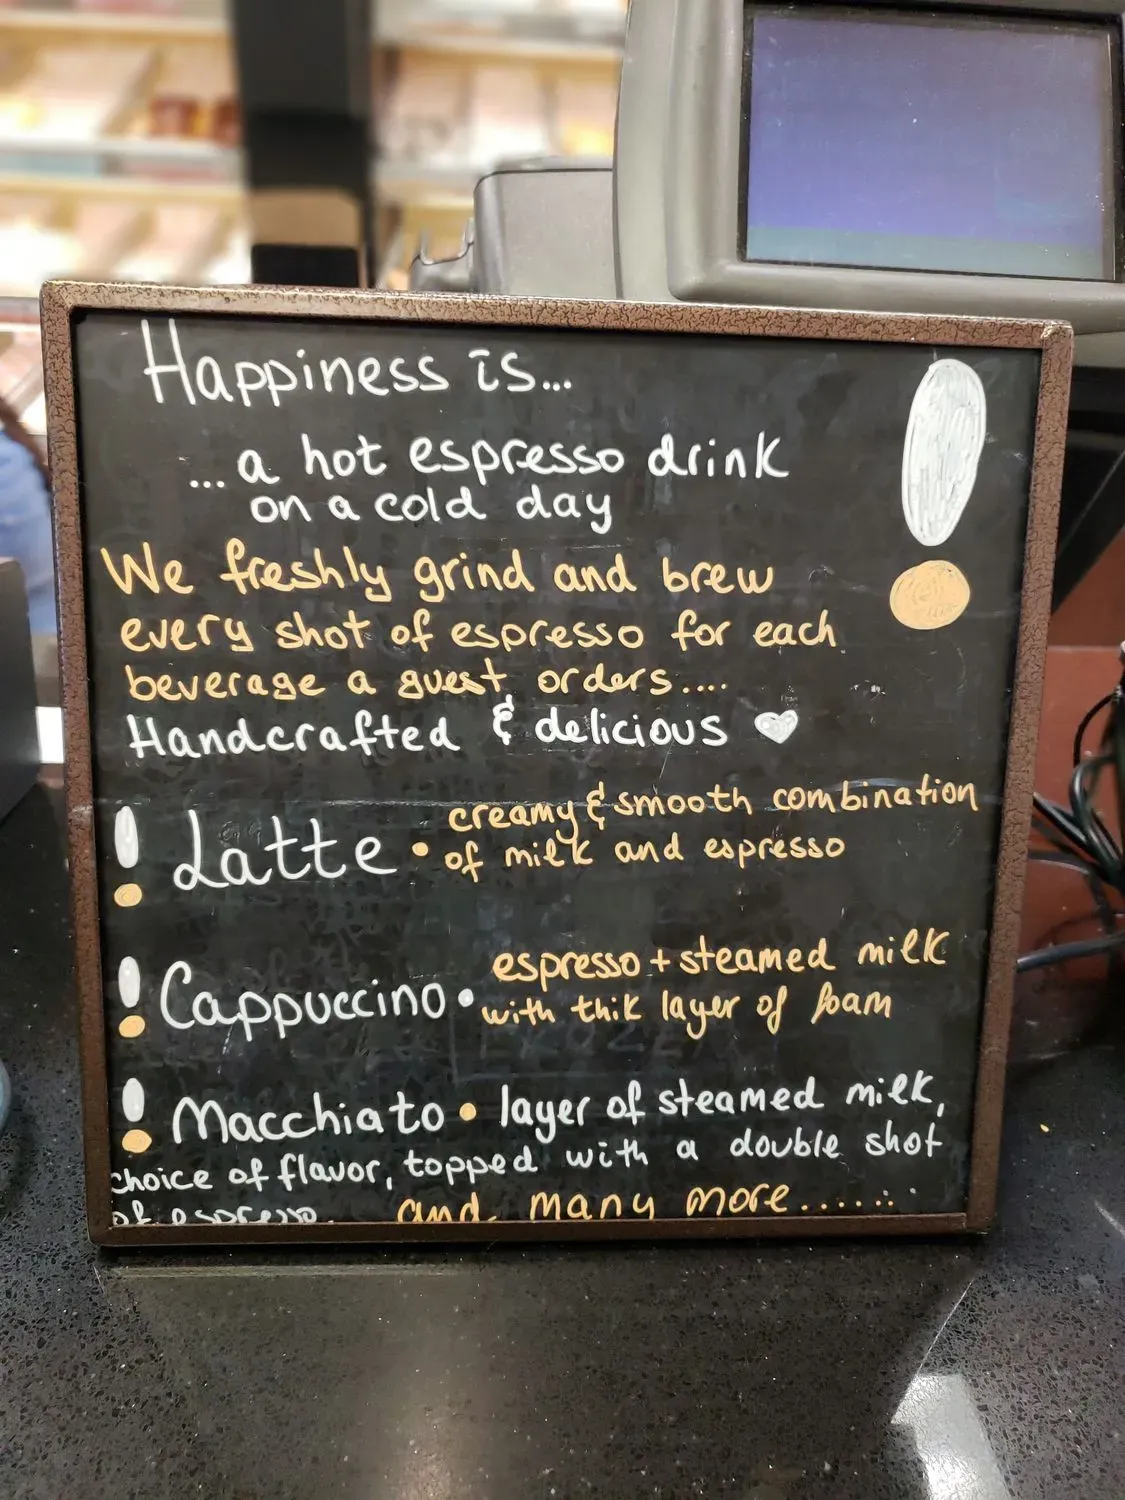 Happiness is...
...a hot espresso drink
on a cold day
We freshly grind and brew
every shot of espresso for each
beverage a guest orders....
Handcrafted & delicious
Latte • creamy & smooth combination
of milk and espresso
Cappuccino • espresso + steamed milk
with thik layer of foam
Macchiato • layer of steamed milk,
choice of flavor, topped with a double shot
of espresso. and many more......